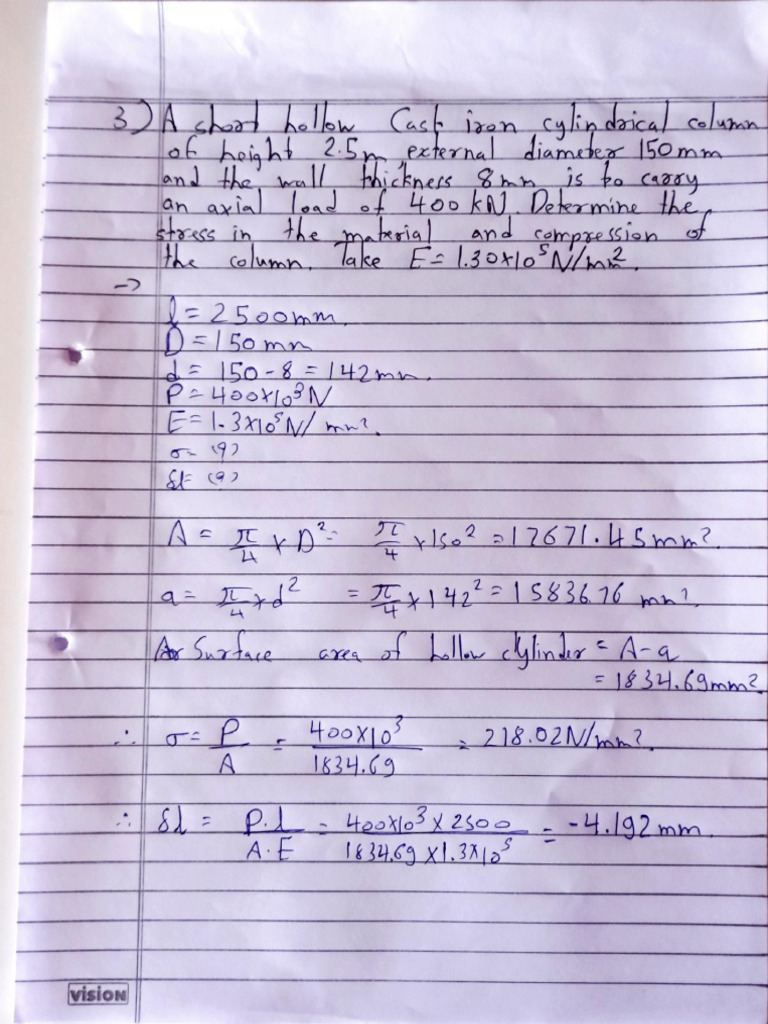 3) A short hollow Cast iron cylindrical column
of height 2.5m, external diameter 150mm
and the wall thickness 8mm is to carry
an axial load of 400 kN. Determine the
stress in the material and compression of
the column. Take E = 1.30×10⁵ N/mm².
→
l = 2500mm.
D = 150mm
d = 150 - 8 = 142mm.
P = 400×10³N
E = 1.3×10⁵N/mm².
σ = (?)
δl = (?)
A = π/4 × D² = π/4 × 150² = 17671.45mm².
a = π/4 × d² = π/4 × 142² = 15836.76 mm².
Surface area of hollow cylinder = A-a
= 1834.69mm²
∴ σ = P/A = 400×10³/1834.69 = 218.02N/mm².
∴ δl = P.l/A.E = 400×10³ × 2500/1834.69 × 1.3×10⁵ = -4.192mm.
vision